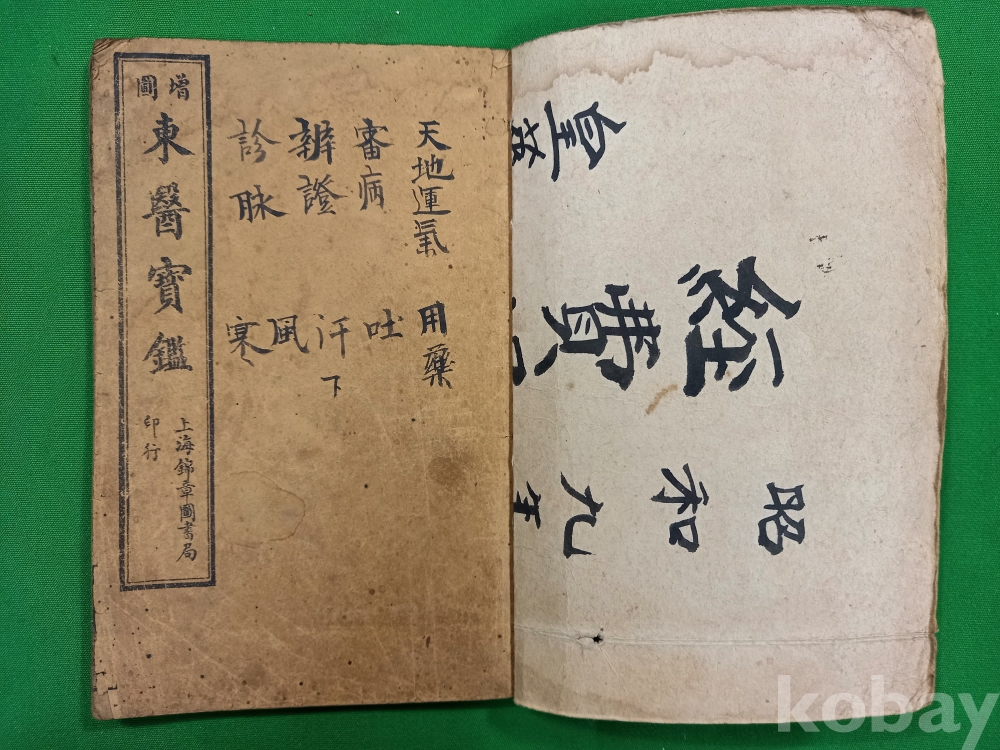 昭和九年
經費
天地運氣 用藥
審病 吐
辨證 汗下
診脉 風寒
增圖
東醫寶鑑
上海錦章圖書局
印行
kobay